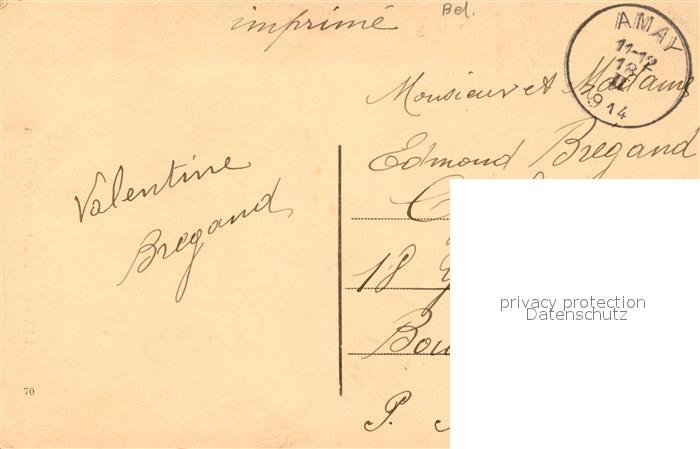 imprimé
Bel.
AMAY
11-12
18
II
1914
Monsieur et Madame
Edmond Bregand
18
Valentine
Bregand
70
P.
privacy protection
Datenschutz